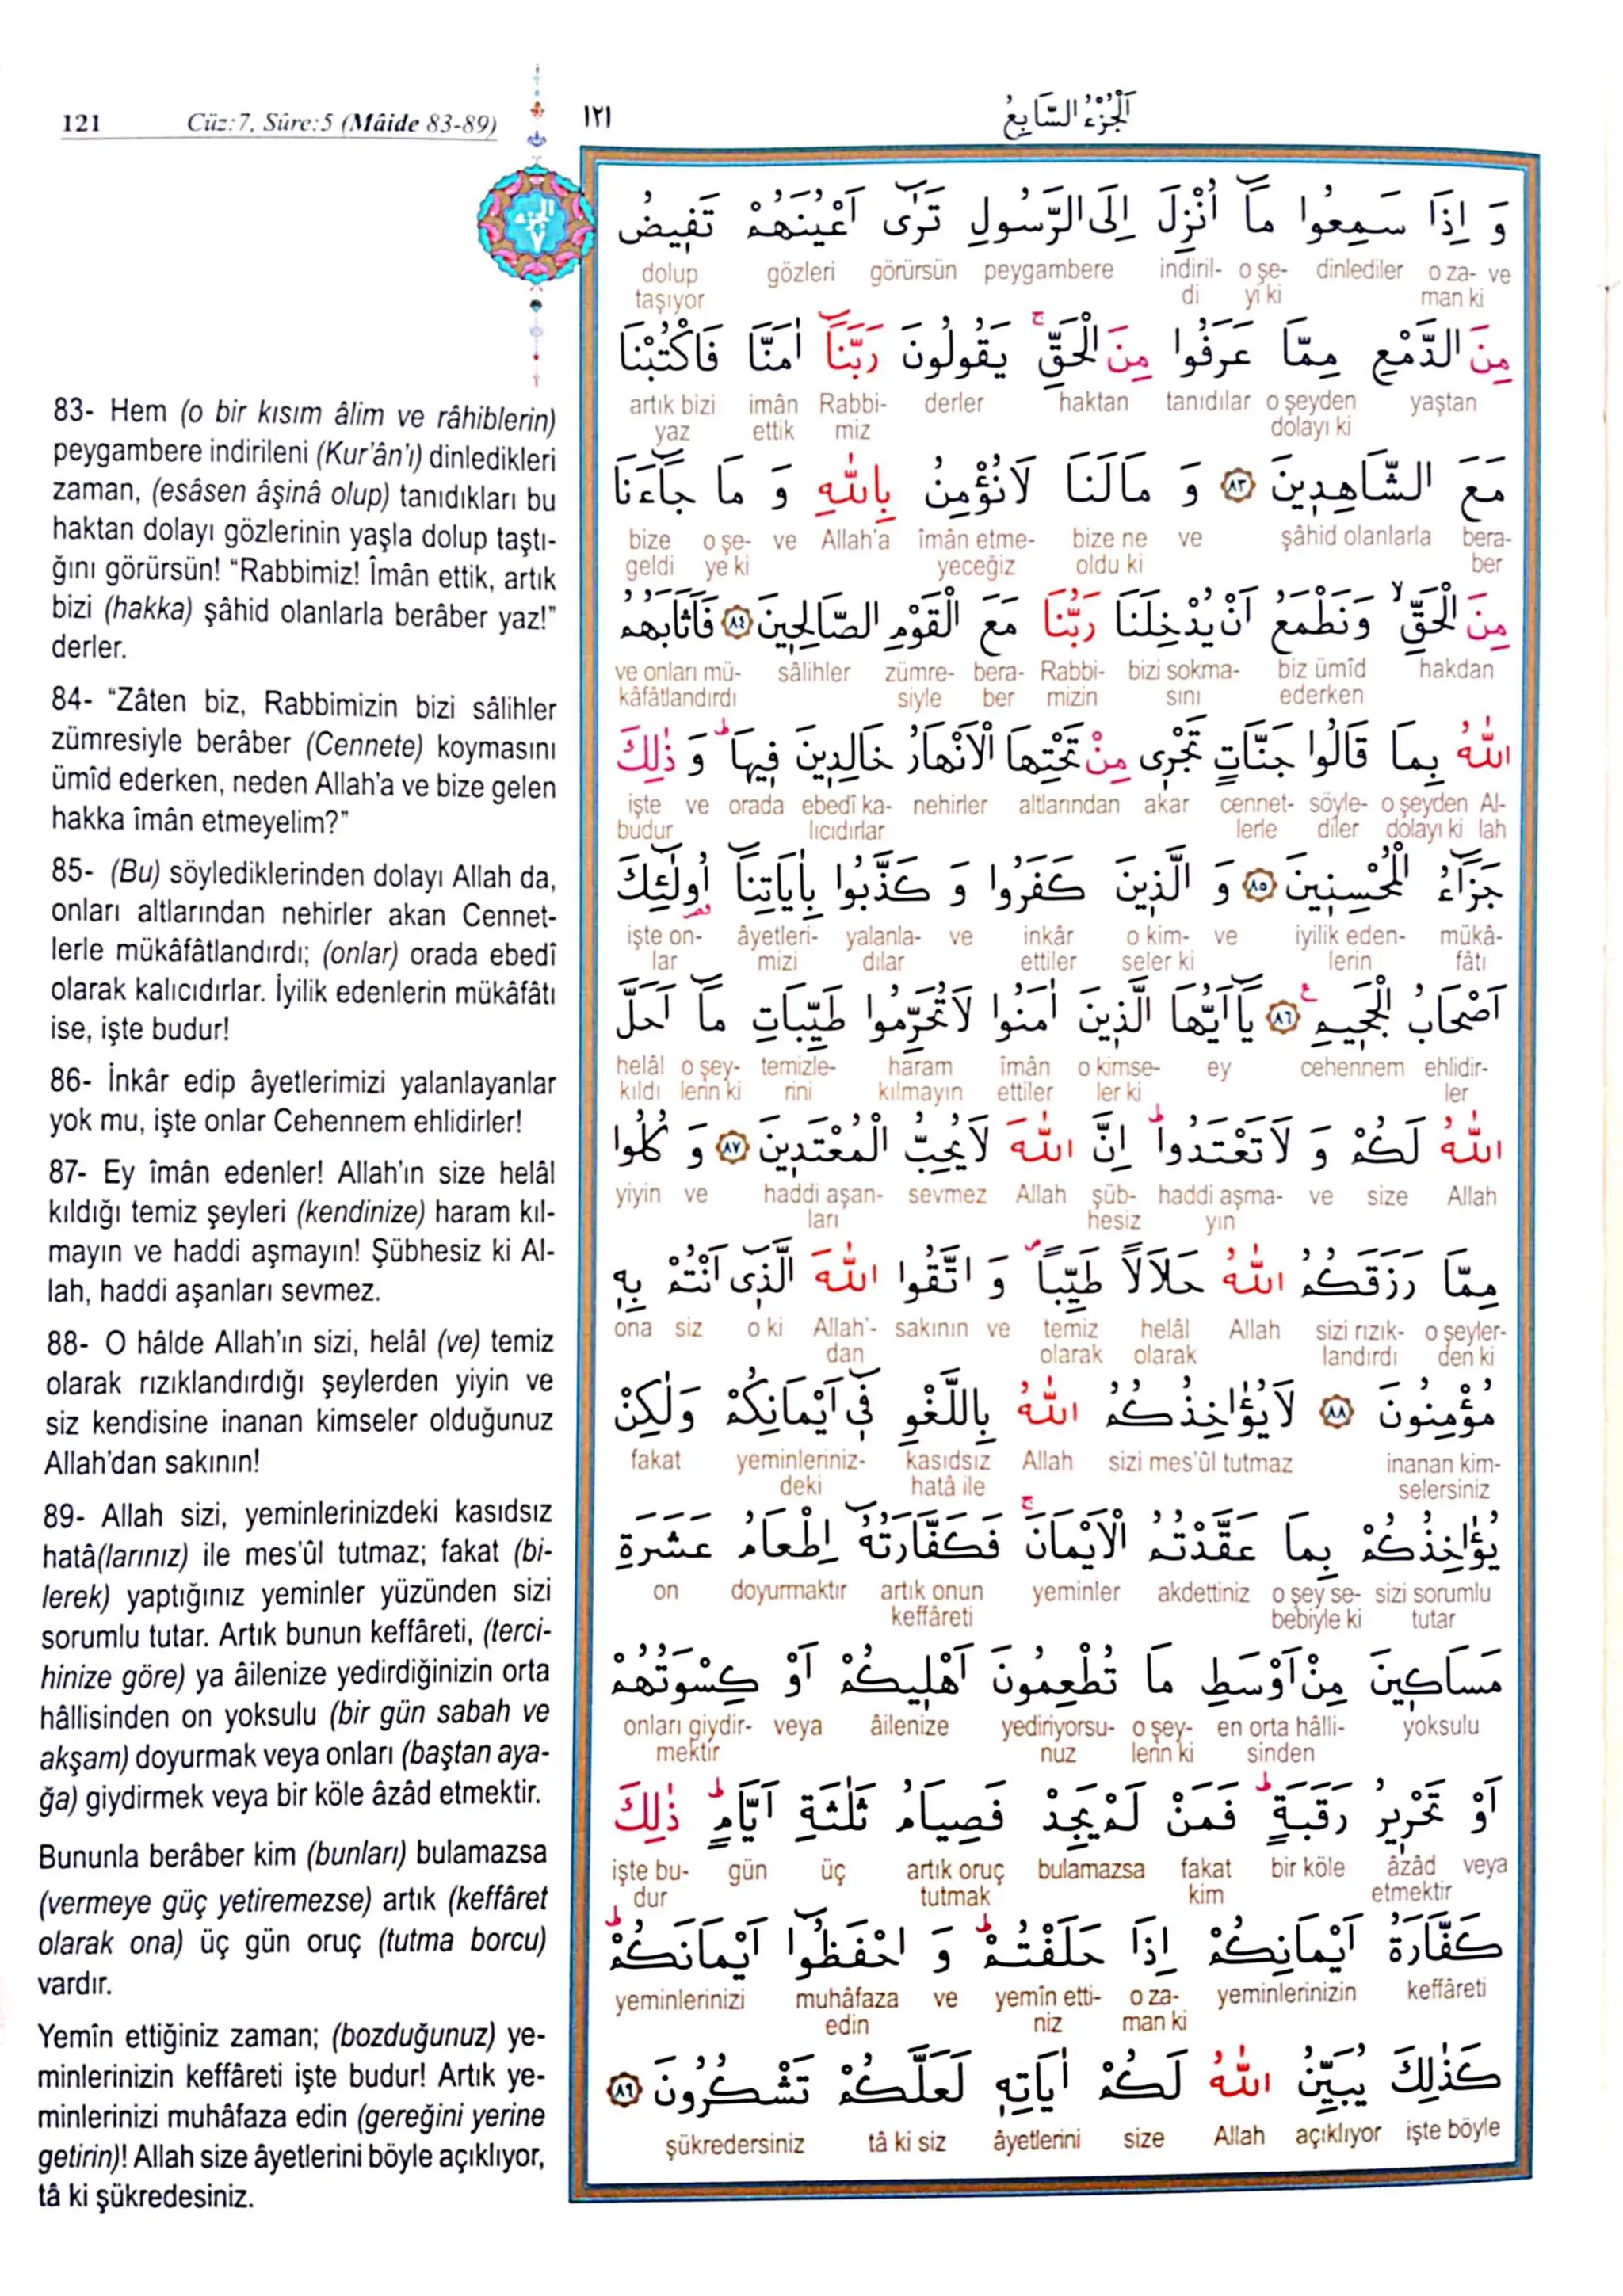 121 Cüz:7, Sûre:5 (Mâide 83-89)
١٢١
اَلْجُزْءُ السَّابِعُ
الجزء
٧
83- Hem (o bir kısım âlim ve râhiblerin)
peygambere indirileni (Kur’ân’ı) dinledikleri
zaman, (esâsen âşinâ olup) tanıdıkları bu
haktan dolayı gözlerinin yaşla dolup taştı-
ğını görürsün! “Rabbimiz! Îmân ettik, artık
bizi (hakka) şâhid olanlarla berâber yaz!”
derler.
84- “Zâten biz, Rabbimizin bizi sâlihler
zümresiyle berâber (Cennete) koymasını
ümîd ederken, neden Allah’a ve bize gelen
hakka îmân etmeyelim?”
85- (Bu) söylediklerinden dolayı Allah da,
onları altlarından nehirler akan Cennet-
lerle mükâfâtlandırdı; (onlar) orada ebedî
olarak kalıcıdırlar. İyilik edenlerin mükâfâtı
ise, işte budur!
86- İnkâr edip âyetlerimizi yalanlayanlar
yok mu, işte onlar Cehennem ehlidirler!
87- Ey îmân edenler! Allah’ın size helâl
kıldığı temiz şeyleri (kendinize) haram kıl-
mayın ve haddi aşmayın! Şübhesiz ki Al-
lah, haddi aşanları sevmez.
88- O hâlde Allah’ın sizi, helâl (ve) temiz
olarak rızıklandırdığı şeylerden yiyin ve
siz kendisine inanan kimseler olduğunuz
Allah’dan sakının!
89- Allah sizi, yeminlerinizdeki kasıdsız
hatâ(larınız) ile mes’ûl tutmaz; fakat (bi-
lerek) yaptığınız yeminler yüzünden sizi
sorumlu tutar. Artık bunun keffâreti, (terci-
hinize göre) ya âilenize yedirdiğinizin orta
hâllisinden on yoksulu (bir gün sabah ve
akşam) doyurmak veya onları (baştan aya-
ğa) giydirmek veya bir köle âzâd etmektir.
Bununla berâber kim (bunları) bulamazsa
(vermeye güç yetiremezse) artık (keffâret
olarak ona) üç gün oruç (tutma borcu)
vardır.
Yemîn ettiğiniz zaman; (bozduğunuz) ye-
minlerinizin keffâreti işte budur! Artık ye-
minlerinizi muhâfaza edin (gereğini yerine
getirin)! Allah size âyetlerini böyle açıklıyor,
tâ ki şükredesiniz.
وَ اِذَا سَمِعُوا مَٓا اُنْزِلَ اِلَى الرَّسُولِ تَرٰٓى اَعْيُنَهُمْ تَفِيضُ
dolup gözleri görürsün peygambere indiril- o şe- dinlediler o za- ve
taşıyor di yi ki man ki
مِنَ الدَّمْعِ مِمَّا عَرَفُوا مِنَ الْحَقِّ ۚ يَقُولُونَ رَبَّنَٓا اٰمَنَّا فَاكْتُبْنَا
artık bizi imân Rabbi- derler haktan tanıdılar o şeyden yaştan
yaz ettik miz dolayı ki
مَعَ الشَّاهِدِينَ ﴿٨٣﴾ وَ مَا لَنَا لَا نُؤْمِنُ بِاللّٰهِ وَ مَا جَٓاءَنَا
bize o şe- ve Allah’a îmân etme- bize ne ve şâhid olanlarla bera-
geldi ye ki yeceğiz oldu ki ber
مِنَ الْحَقِّ ۙ وَنَطْمَعُ اَنْ يُدْخِلَنَا رَبُّنَا مَعَ الْقَوْمِ الصَّالِحِينَ ﴿٨٤﴾ فَاَثَابَهُمُ
ve onları mü- sâlihler zümre- bera- Rabbi- bizi sokma- biz ümîd hakdan
kâfâtlandırdı siyle ber mizin sını ederken
اللّٰهُ بِمَا قَالُوا جَنَّاتٍ تَجْرِى مِنْ تَحْتِهَا الْاَنْهَارُ خَالِدِينَ فِيهَا ۜ وَ ذٰلِكَ
işte ve orada ebedî ka- nehirler altlarından akar cennet- söyle- o şeyden Al-
budur lıcıdırlar lerle diler dolayı ki lah
جَزَٓاءُ الْمُحْسِنِينَ ﴿٨٥﴾ وَ الَّذِينَ كَفَرُوا وَ كَذَّبُوا بِاٰيَاتِنَٓا اُولٰٓئِكَ
işte on- âyetleri- yalanla- ve inkâr o kim- ve iyilik eden- mükâ-
lar mizi dılar ettiler seler ki lerin fâtı
اَصْحَابُ الْجَحِيمِ ﴿٨٦﴾ يَٓا اَيُّهَا الَّذِينَ اٰمَنُوا لَا تُحَرِّمُوا طَيِّبَاتِ مَٓا اَحَلَّ
helâl o şey- temizle- haram îmân o kimse- ey cehennem ehlidir-
kıldı lerin ki rini kılmayın ettiler ler ki ler
اللّٰهُ لَكُمْ وَ لَا تَعْتَدُوا ۜ اِنَّ اللّٰهَ لَا يُحِبُّ الْمُعْتَدِينَ ﴿٨٧﴾ وَ كُلُوا
yiyin ve haddi aşan- sevmez Allah şüb- haddi aşma- ve size Allah
ları hesiz yın
مِمَّا رَزَقَكُمُ اللّٰهُ حَلَالاً طَيِّباً ۖ وَ اتَّقُوا اللّٰهَ الَّذِٓى اَنْتُمْ بِهِ
ona siz o ki Allah’- sakının ve temiz helâl Allah sizi rızık- o şeyler-
dan olarak olarak landırdı den ki
مُؤْمِنُونَ ﴿٨٨﴾ لَا يُؤَاخِذُكُمُ اللّٰهُ بِاللَّغْوِ فِٓى اَيْمَانِكُمْ وَلٰكِنْ
fakat yeminleriniz- kasıdsız Allah sizi mes’ûl tutmaz inanan kim-
deki hatâ ile selersiniz
يُؤَاخِذُكُمْ بِمَا عَقَّدْتُمُ الْاَيْمَانَ ۚ فَكَفَّارَتُهُٓ اِطْعَامُ عَشَرَةِ
on doyurmaktır artık onun yeminler akdettiniz o şey se- sizi sorumlu
keffâreti bebiyle ki tutar
مَسَاكِينَ مِنْ اَوْسَطِ مَا تُطْعِمُونَ اَهْلِيكُمْ اَوْ كِسْوَتُهُمْ
onları giydir- veya âilenize yediriyorsu- o şey- en orta hâlli- yoksulu
mektir nuz lerin ki sinden
اَوْ تَحْرِيرُ رَقَبَةٍ ۜ فَمَنْ لَمْ يَجِدْ فَصِيَامُ ثَلٰثَةِ اَيَّامٍ ۜ ذٰلِكَ
işte bu- gün üç artık oruç bulamazsa fakat bir köle âzâd veya
dur tutmak kim etmektir
كَفَّارَةُ اَيْمَانِكُمْ اِذَا حَلَفْتُمْ ۜ وَ احْفَظُٓوا اَيْمَانَكُمْ ۜ
yeminlerinizi muhâfaza ve yemîn etti- o za- yeminlerinizin keffâreti
edin niz man ki
كَذٰلِكَ يُبَيِّنُ اللّٰهُ لَكُمْ اٰيَاتِهِ لَعَلَّكُمْ تَشْكُرُونَ ﴿٨٩﴾
şükredersiniz tâ ki siz âyetlerini size Allah açıklıyor işte böyle